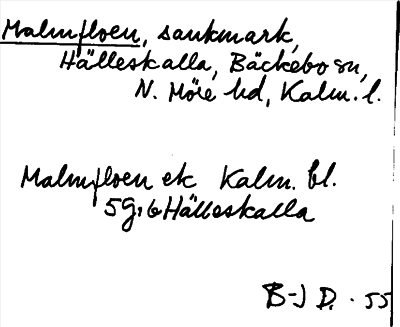 Malmfloen, sankmark,
Hälleskalla, Bäckebo sn,
N. Möre hd, Kalm. l.
Malmfloen ek Kalm. bl.
5G, 6 Hälleskalla
B-J D. 55